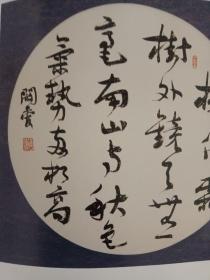 樹外鏡天無一
毫南山与秋色
氣勢兩相高